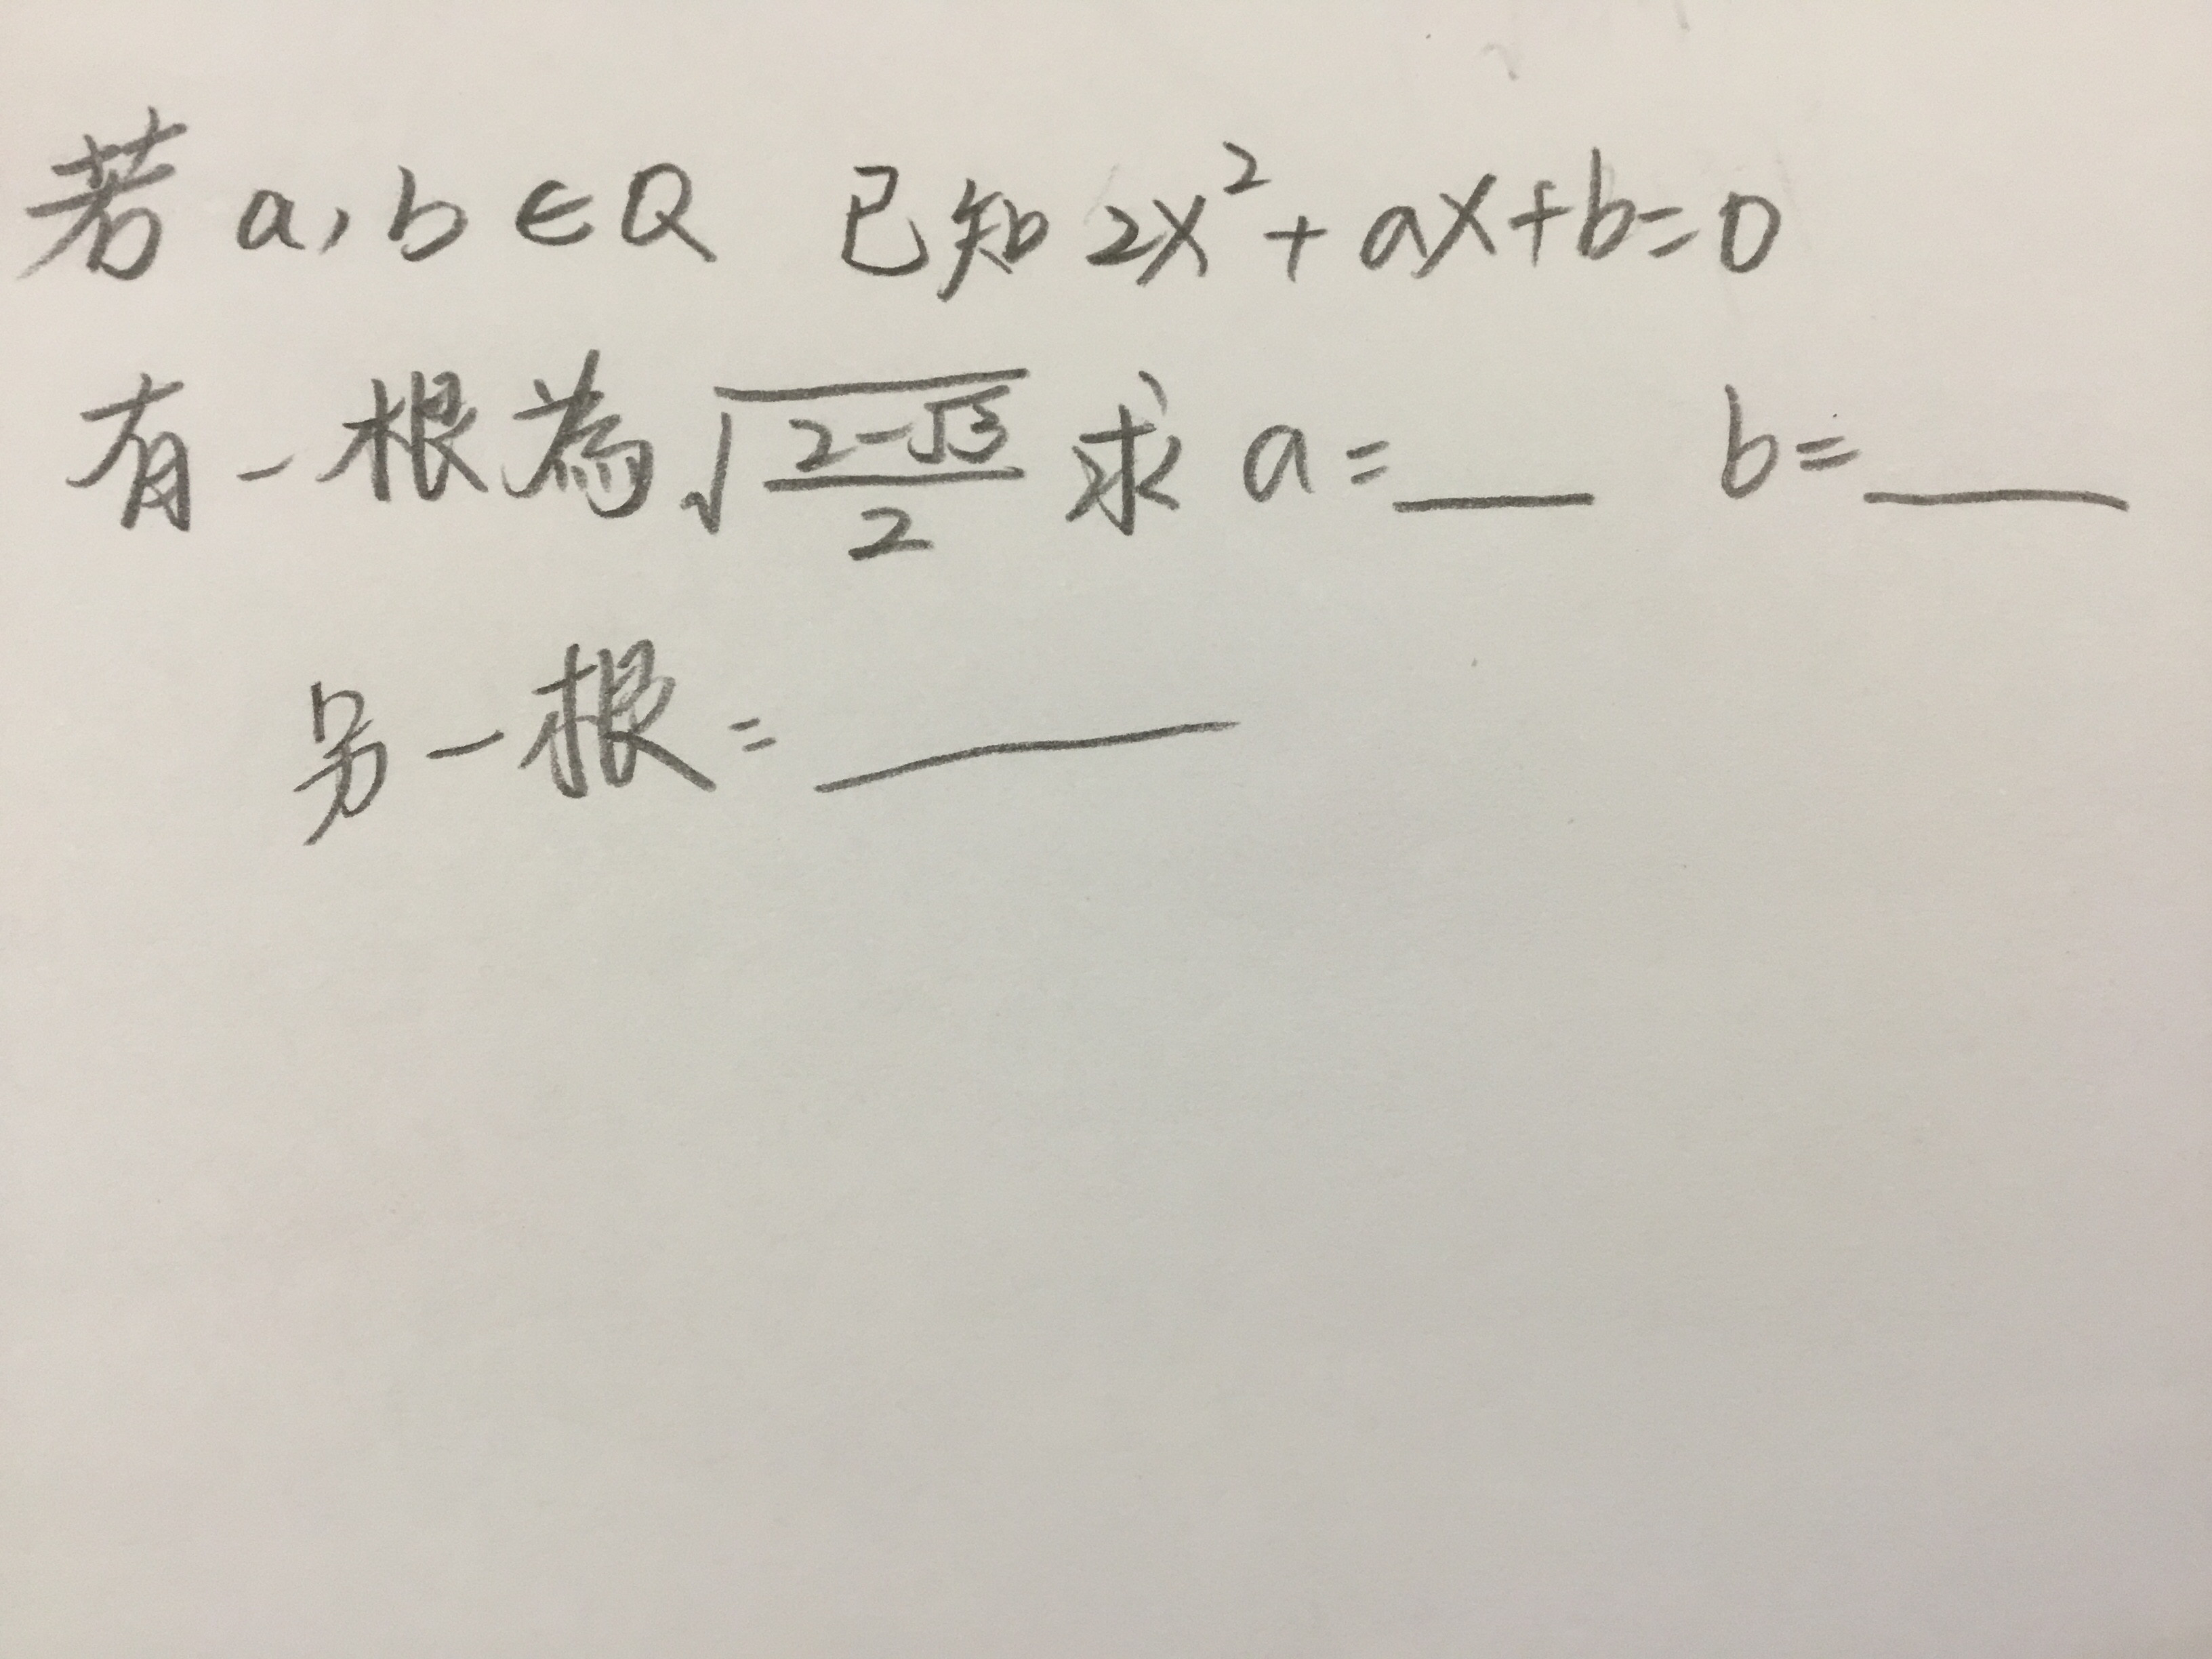 若 a,b∈Q 已知 2x²+ax+b=0
有一根為√((2-√3)/2) 求 a=___ b=___
另一根=___